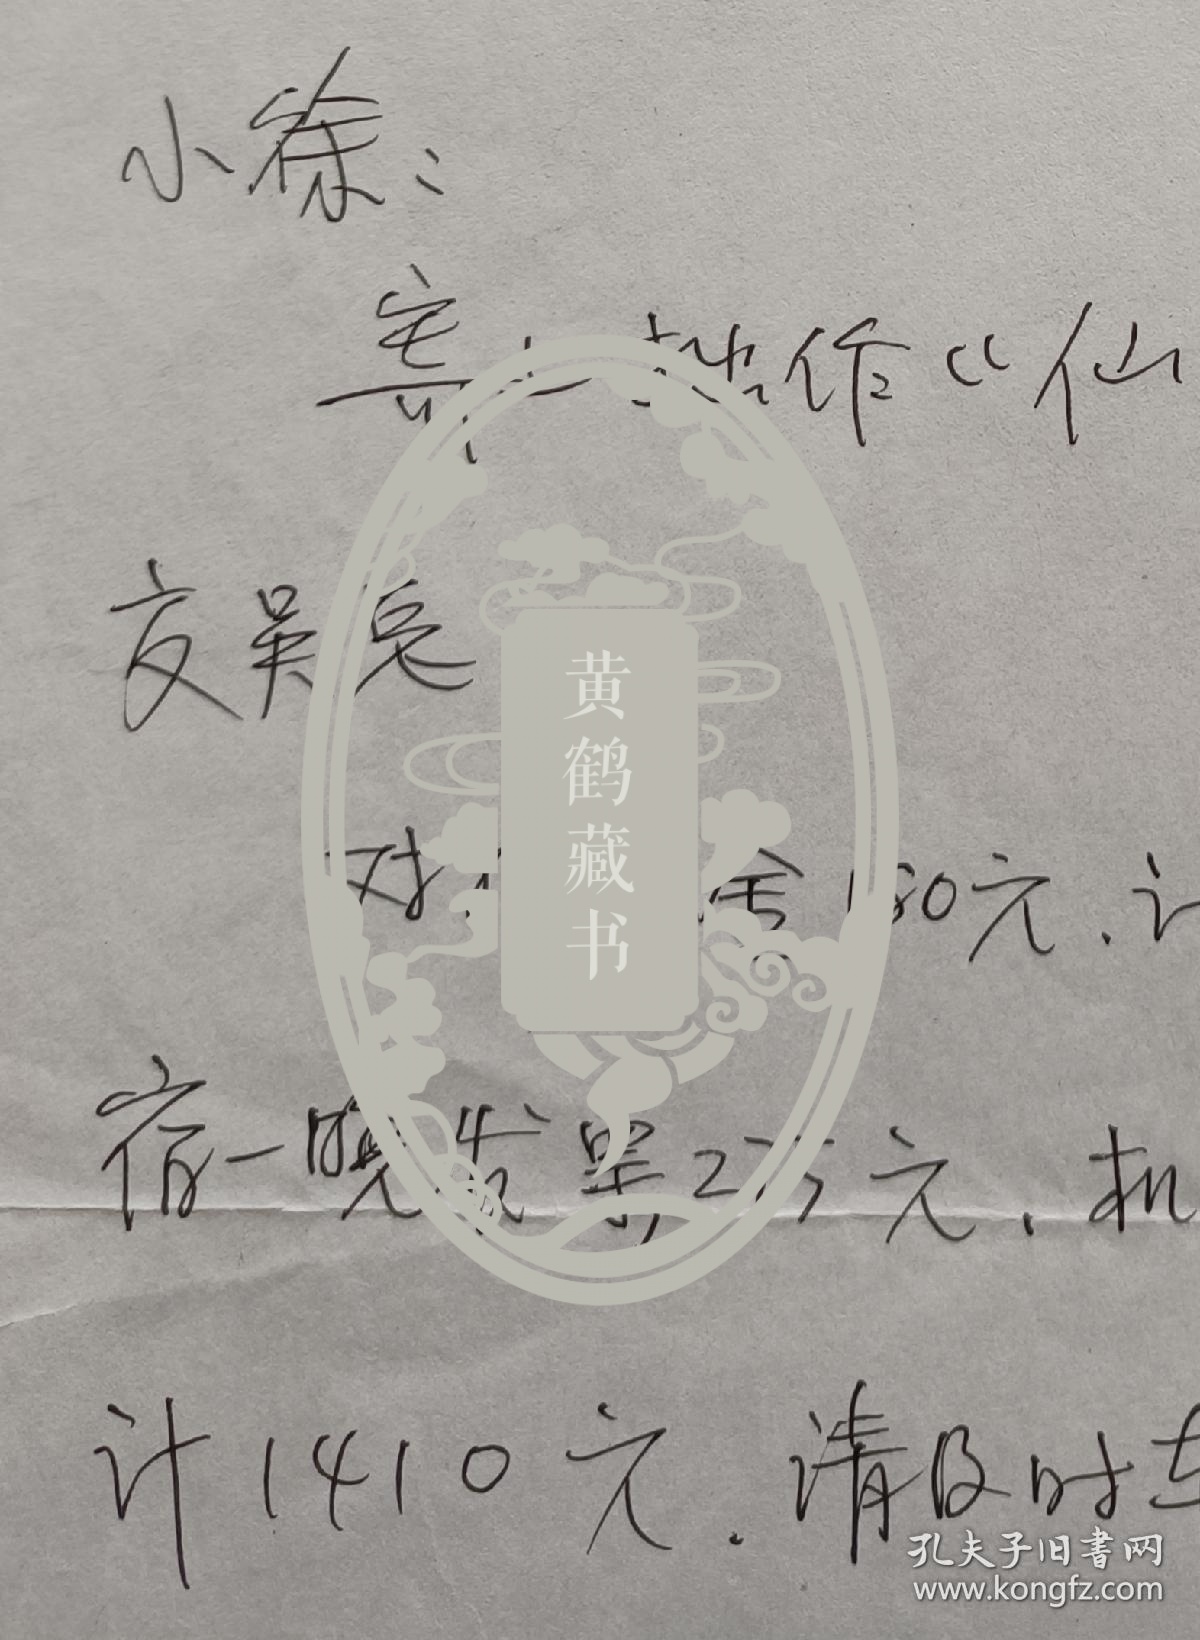 小徐：
寄上拙作“仙
交吴亮
对 舍180元、计
宿一晚发票275元、机
计1410元.请及时
黄鹤藏书
孔夫子旧书网
www.kongfz.com